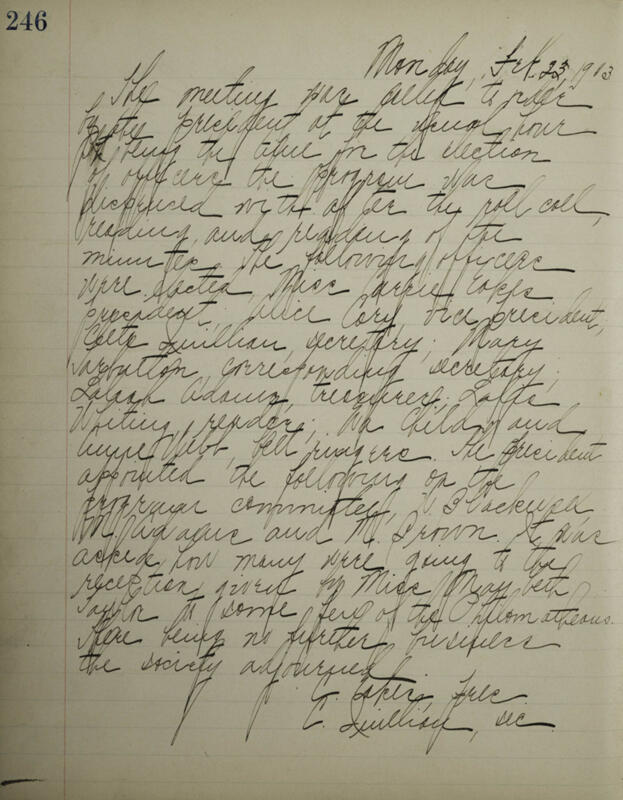 246
Monday, Feb. 23, 1913
The meeting was called to order
by the president at the usual hour
It being the time for the election
of officers the program was
dispensed with after the roll call,
reading, and reading of the
minutes. The following officers
were elected, Miss Carrie
president, Alice Cory vice president,
Quillian, secretary, Mary
corresponding secretary,
Adams, treasurer,
Whiting, reader, and
Webb, bell ringers. The president
appointed the following on the
program committee,
Adams and M. Brown. It was
asked how many were going to the
reception given by Miss May beth
Taylor to some few of the Philomatheans.
There being no further business
the society adjourned
C. Pres.
C. Quillian, sec